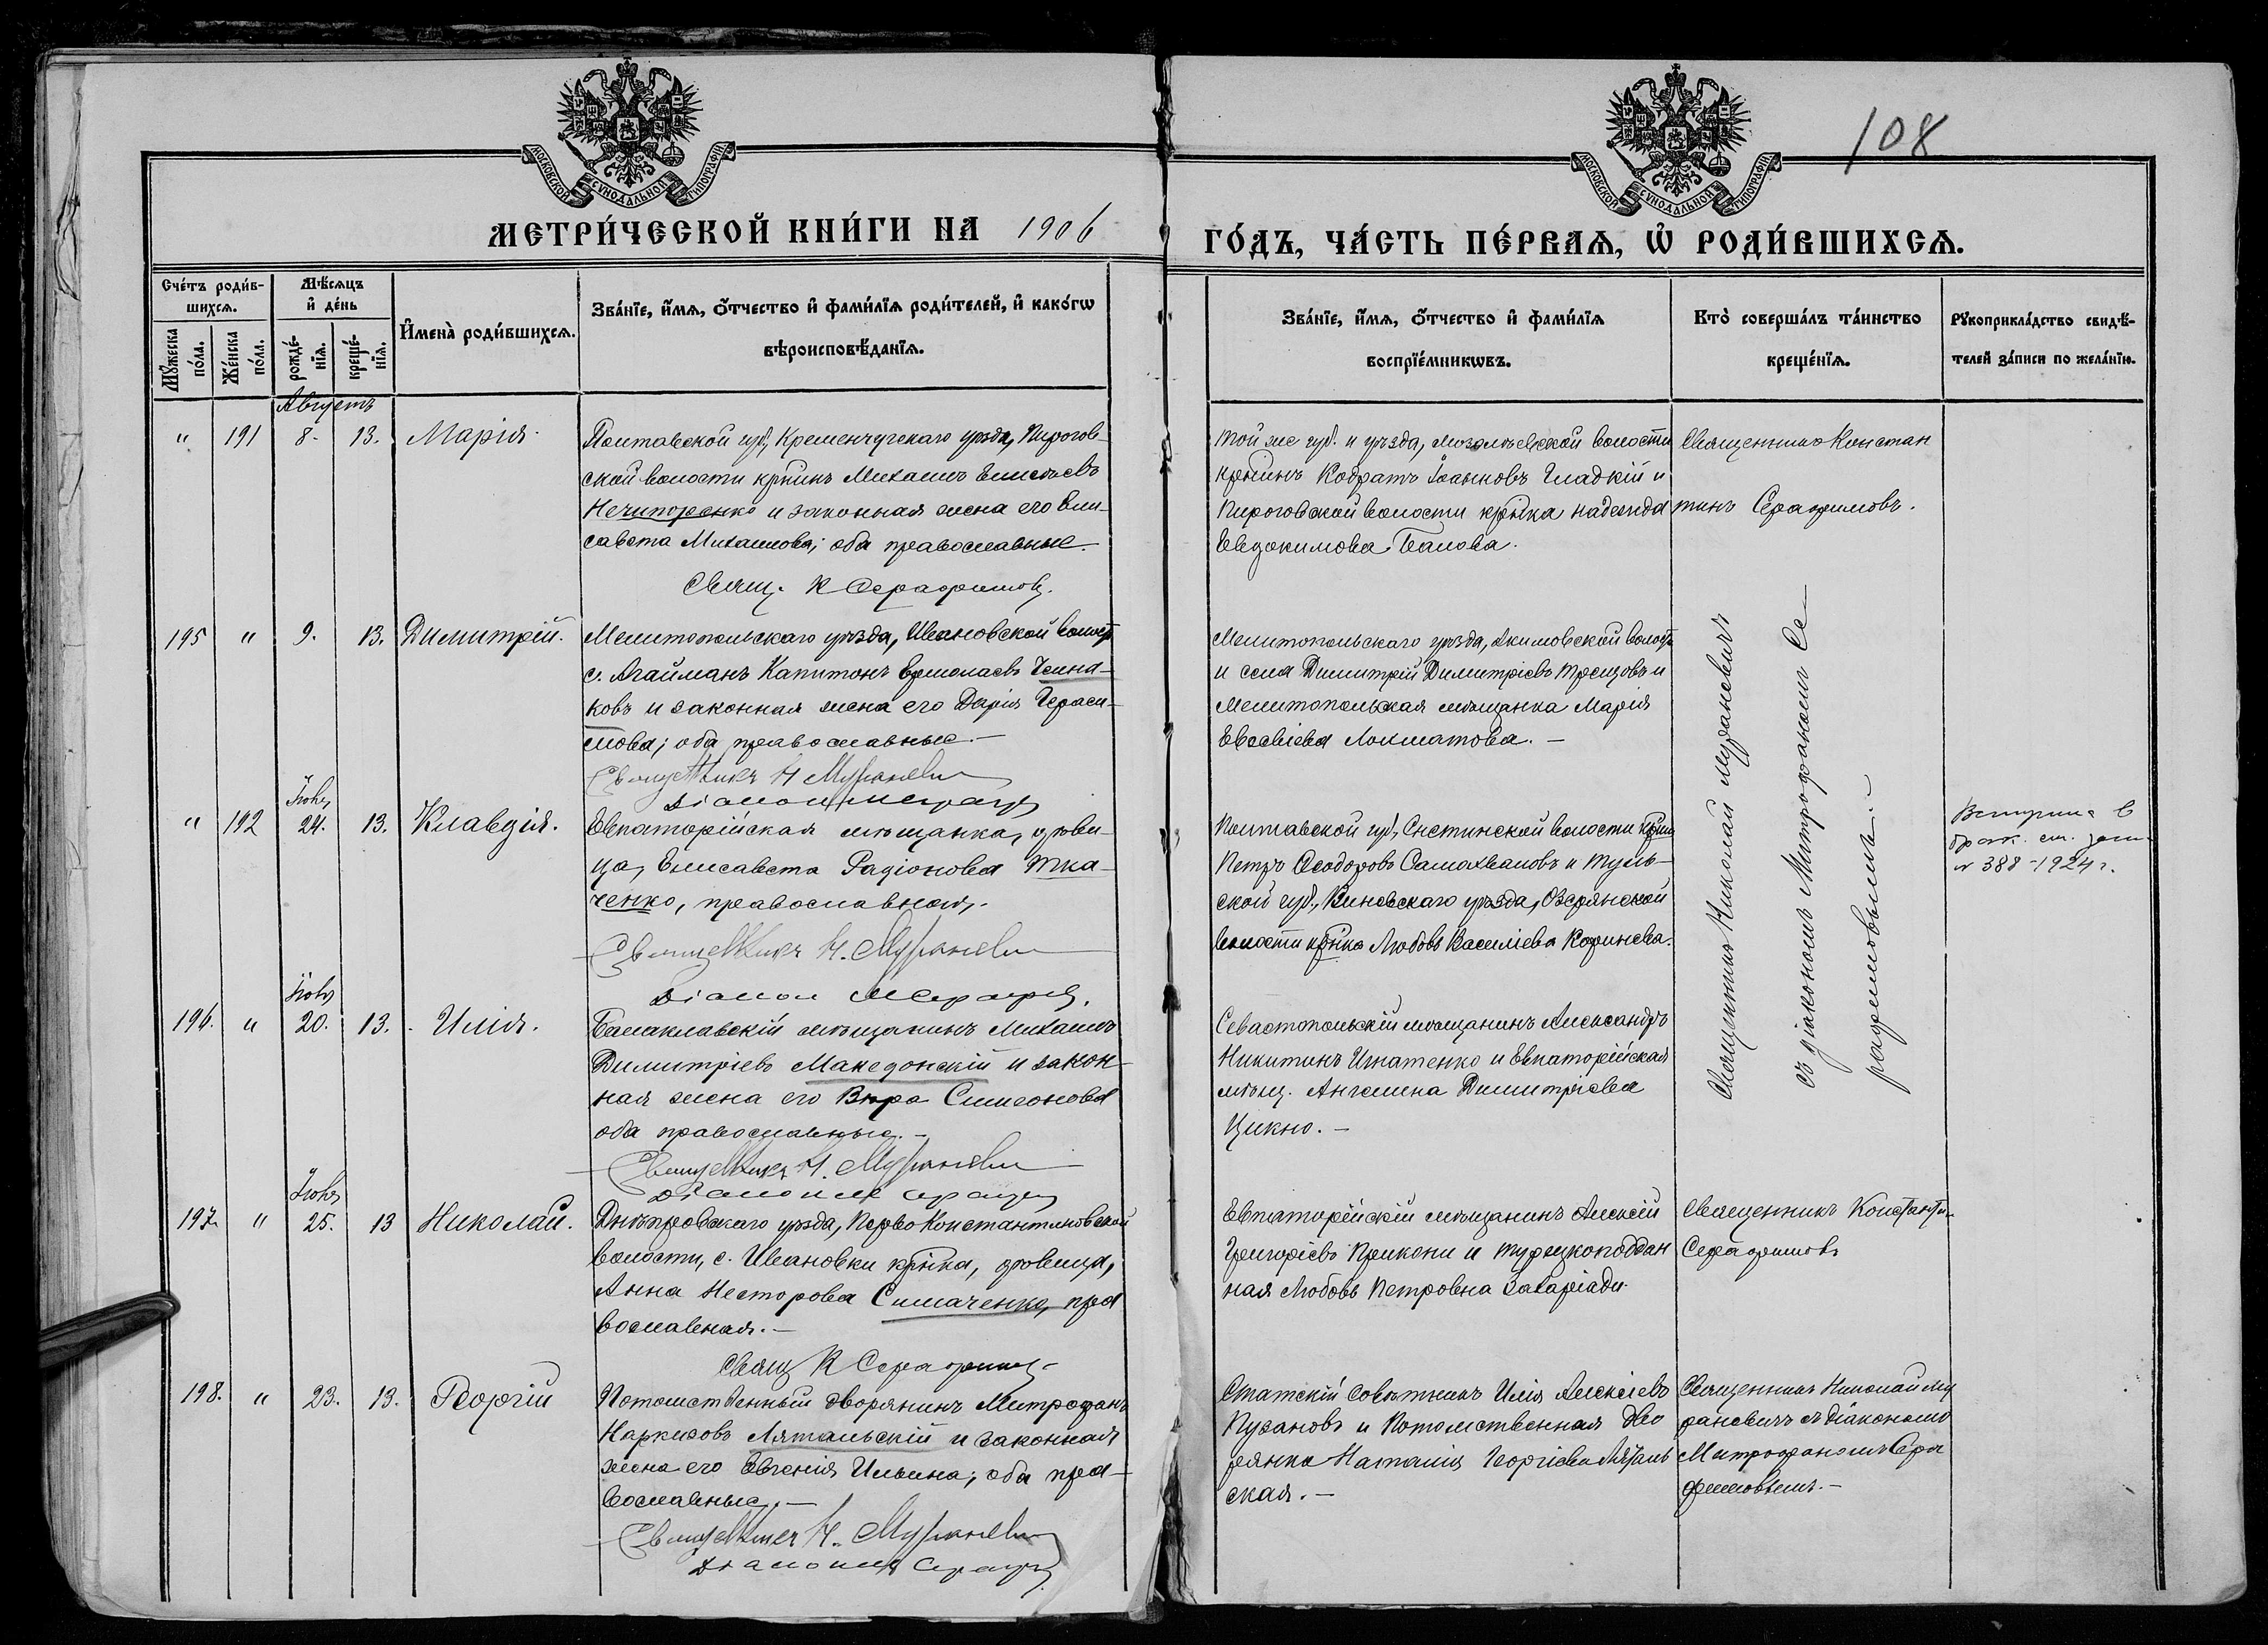 108
МОСКОВСКОЙ СѴНОДАЛЬНОЙ ТИПОГРАФІИ
МОСКОВСКОЙ СѴНОДАЛЬНОЙ ТИПОГРАФІИ
МЕТРИ́ЧЕСКОЙ КНИ́ГИ НА 1906
ГО́ДЪ, ЧА́СТЬ ПЕ́РВАЯ, Ѡ҆ РОДИ́ВШИХСЯ.
Сче́тъ роди́в-
шихся.
Мꙋ́жеска по́ла.
Же́нска по́ла.
Мѣ́сяцъ
и҆ де́нь
рожде́-
нїя.
креще́-
нїя.
И҆мена̀ роди́вшихся.
Зва́нїе, и҆́мя, ѻ҆́тчество и҆ фами́лїя роди́телей, и҆ како́гѡ
вѣроисповѣ́данїя.
Зва́нїе, и҆́мя, ѻ҆́тчество и҆ фами́лїя
воспрїе́мникѡвъ.
Кто̀ соверша́лъ та́инство
креще́нїя.
Рꙋкоприкла́дство свидѣ́-
телей за́писи по жела́нїю.
Августъ
" 191 8. 13. Марія.
Полтавской губ, Кременчугскаго уѣзда, Пирогов-
ской волости крнинъ Михаилъ Елисѣевъ
Нечипоренко и законная жена его Ели-
савета Михаилова; оба православные.
Свящ. К Серафимов.
Той же губ. и уѣзда, волости
крнинъ Кодратъ Іоанновъ Гладкій и
Пироговской волости крнка Надежда
Евдокимова Балова.
Священникъ Констан
тинъ Серафимовъ.
195 " 9. 13. Димитрій.
Мелитопольскаго уѣзда, Ивановской волост
с. Агайманъ Капитонъ Ермолаевъ Челна-
ковъ и законная жена его Дарія Гераси-
мова; оба православные.—
Священникъ Н Мураневи
Діаконъ М Сераф
Мелитопольскаго уѣзда, Акимовской волост
и села Димитрій Димитріевъ Трещовъ и
Мелитопольская мѣщанка Марія
Евсевіева Лохматова.—
Священникъ Николай Мураневичъ
съ діакономъ Митрофаномъ Се-
рафимовымъ.—
Іюля
" 192 24. 13. Клавдія.
Евпаторійская мѣщанка, дѣви-
ца, Елисавета Радіонова Тка-
ченко, православная.
Священникъ Н. Мураневи
Діакон М Сераф.
Полтавской губ, Снетинской волости крнин
Петръ Ѳеодоровъ Самохваловъ и Туль-
ской губ., уѣзда, Озерянской
волости крнка Любовь Василіева Корнѣева.
Вступила в
брак. см. зап.
№ 388-1924 г.
Іюля
196. " 20. 13. Илія.
Балаклавскій мѣщанинъ Михаилъ
Димитріевъ Македонскій и закон-
ная жена его Вѣра Симеонова
оба православные.—
Священникъ Н. Мураневи
Діаконъ М Сераф
Севастопольскій мѣщанинъ Александръ
Никитинъ Игнатенко и Евпаторійская
мѣщ. Ангелина Димитріева
Цикно.—
Іюля
197. " 25. 13 Николай.
Днѣпровскаго уѣзда, Перво Константиновской
волости, с. Ивановки крнка, дѣвица,
Анна Несторова Симаченко, пра
вославная.—
Свящ К Серафимов
Евпаторійскій мѣщанинъ Алексій
Григоріевъ Прикони и турецкоподдан
ная Любовь Петровна Захаріади.
Священникъ Константи-
Серафимовъ
198. " 23. 13. Георгій
Потомственный дворянинъ Митрофанъ
Наркизовъ Лятальскій и законная
жена его Евгенія Ильина; оба пра-
вославные.—
Священникъ Н. Мураневи
Діаконъ М Сераф
Статскій совѣтникъ Илія Алексіевъ
Пузановъ и Потомственная дво
рянка Наталія Георгіева Ляталь
ская.—
Священникъ Николай Му
раневичъ съ діакономъ
Митрофаномъ Сера
фимовымъ.—